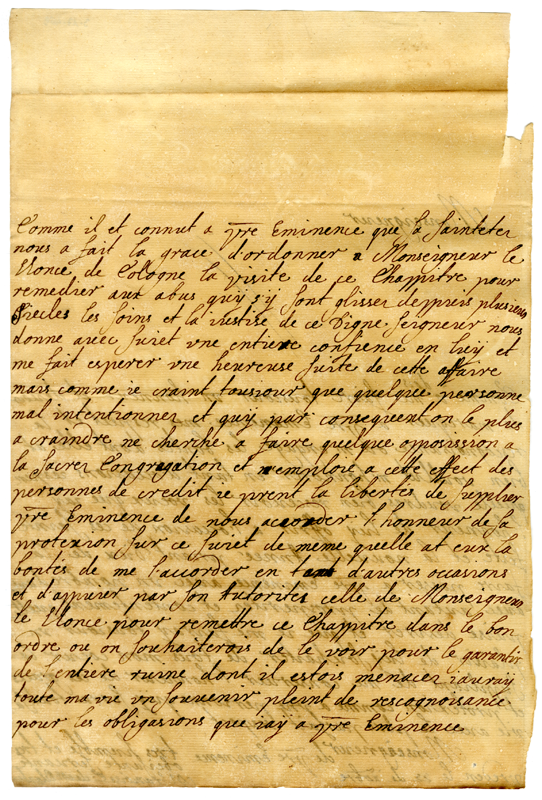 Comme il et connut a vre Eminence que sa Sainteter
nous a fait la grace d'ordonner a Monseigneur le
Nonce de Cologne la visite de ce Chappitre pour
remedier aux abus quy s'y sont glisser deppuis plusieurs
Siecles les soins et la justise de ce Digne seigneur nous
donne avec suiet vne entiere confience en luy et
me fait esperer vne heureuse suite de cette affaire
mais comme ie craint tousiour que quelque personne
mal intentionner et quy par consequent on le plus
a craindre ne cherche a faire quelque opposission a
la Sacrer Congregation et n'emploie a cette effect des
personnes de credit ie prent la libertes de supplier
vre Eminence de nous accorder l'honneur de sa
protexion sur ce suiet de meme quelle at eux la
bontes de me l'accorder en tant d'autres occasions
et d'appuier par son autorites celle de Monseigneur
le Nonce pour remettre ce Chappitre dans le bon
ordre ou on souhaiterois de le voir pour le garantir
de l'entiere ruine dont il estois menacer i'auray
toute ma vie vn souvenir pleint de rescognoisance
pour les obligasions que i'ay a vre Eminence